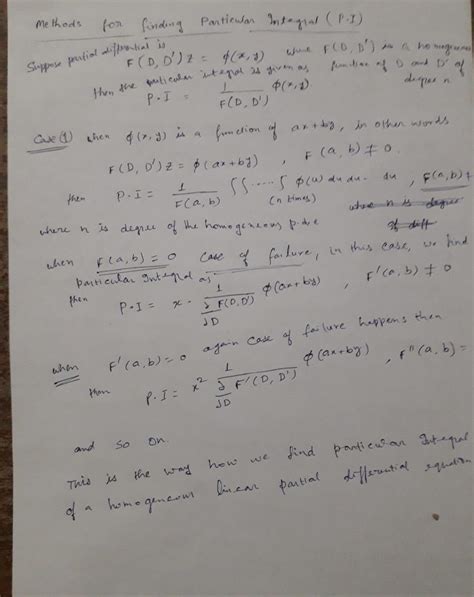 Methods for finding Particular Integral (P.I)
Suppose partial differential is
F(D, D') z = φ(x,y) where F(D, D') is a homogeneous
function of D and D' of
degree n
then the particular integral is given as
P.I = 1/F(D, D') φ(x,y)
Case (1) when φ(x,y) is a function of ax+by, in other words
F(D, D') z = φ(ax+by) , F(a, b) ≠ 0
then P.I = 1/F(a, b) ∫∫.....∫ φ(u) du du.. du , F(a,b) ≠
(n times)
where n is degree of the homogeneous p.d.e
when F(a,b) = 0 Case of failure, in this case, we find
particular Integral as
then P.I = x · 1/(∂/∂D F(D,D')) φ(ax+by) , F'(a, b) ≠ 0
when F'(a,b) = 0 again case of failure happens then
then P.I = x² 1/(∂/∂D F'(D, D')) φ(ax+by) , F''(a, b) =
and so on.
This is the way how we find particular Integral
of a homogeneous linear partial differential equation